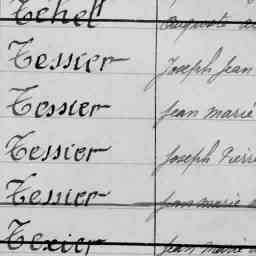 Tchel Auguste
Tessier Joseph Jean
Tessier Jean marie
Tessier Joseph Pierre
Tessier Jean marie
Texier Jean marie